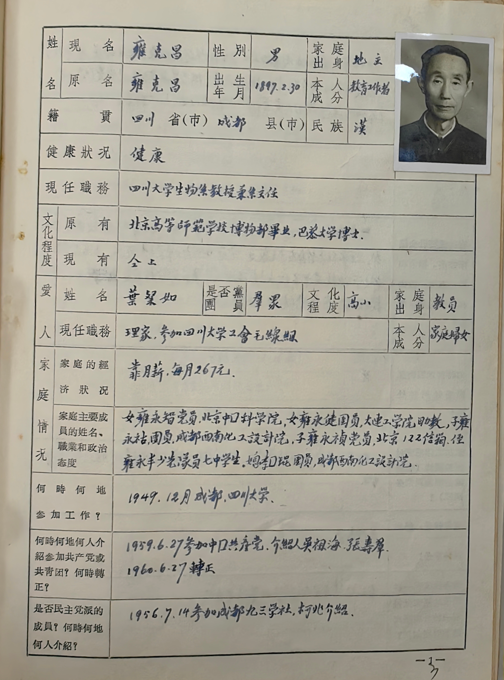 姓名 現名 雍克昌 性別 男 家庭出身 地主
原名 雍克昌 出生年月 1897.2.30 本人成分 教育工作者
籍貫 四川省(市)成都縣(市) 民族 漢
健康狀況 健康
現任職務 四川大学生物系教授兼系主任
文化程度 原有 北京高等師範学校博物部畢业，巴黎大学博士.
現有 仝上
愛人 姓名 葉棨如 是否黨團員 羣众 文化程度 高小 家庭出身 教員
現任職務 理家，参加四川大学工会毛線組 本人成分 家庭婦女
家庭情况 家庭的經濟狀况 靠月薪，每月267元.
家庭主要成員的姓名、職業和政治态度 女雍永智党员，北京中囗科学院，女雍永健团员，大連工学院助教，子雍
永祜团员，成都西南化工設計院，子雍永禎党员，北京122信箱，侄
雍永丰少先隊员七中学生，媳李囗琨团员，成都西南化工設計院.
何時何地参加工作？ 1949.12月成都，四川大学.
何時何地何人介紹参加共产党或共青团？何時轉正？ 1959.6.27参加中囗共產党，介紹人吳祖海，張壽羣
1960.6.27轉正
是否民主党派的成員？何時何地何人介紹？ 1956.7.14参加成都九三学社，柯兆介紹.